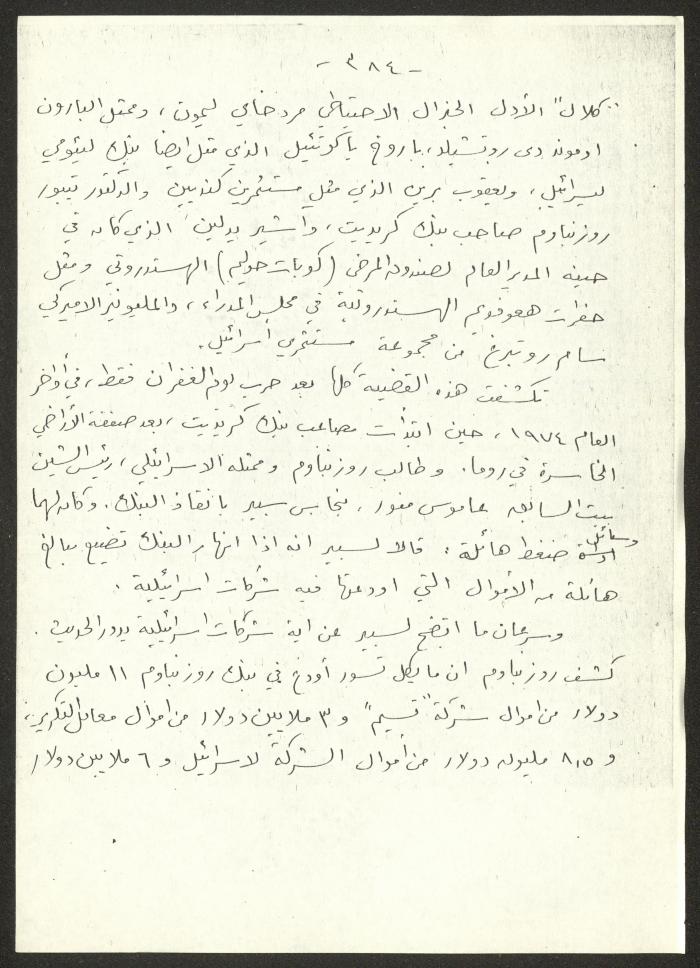 - ٣٨٤ -
"كلال" الأول الجنرال الاحتياطي مردخاي ليمون، وممثل البارون
ادموند دي روتشيلد، باروخ ياكوتئيل الذي مثل ايضا بنك لئومي
ليسرائيل، ويعقوب برين الذي مثل مستثمرين كنديين والدكتور تيبور
روزنباوم صاحب بنك كريديت، واشير يدلين الذي كان في
حينه المدير العام لصندوق المرضى (كوبات حوليم) الهستدروتي ومثل
حفرات هعوفديم الهستدروتية في مجلس المدراء، والمليونير الاميركي
سام روتبرغ من مجموعة مستثمري اسرائيل.
تكشفت هذه القضية كلها بعد حرب يوم الغفران فقط، في أواخر
العام ١٩٧٤، حين ابتدأت مصاعب بنك كريديت، بعد صفقة الأراضي
الخاسرة في روما. وطالب روزنباوم وممثله الاسرائيلي، رئيس الشين
بيت السابق عاموس منور، بنحاس سبير بانقاذ البنك. وكان لهما
وسائل ضغط هائلة: قالا لسبير انه اذا انهار البنك تضيع مبالغ
هائلة من الأموال التي اودعتها فيه شركات اسرائيلية.
وسرعان ما اتضح لسبير عن اية شركات اسرائيلية يدور الحديث.
كشف روزنباوم ان مايكل تسور أودع في بنك روزنباوم ١١ مليون
دولار من اموال شركة "تسيم" و ٣ ملايين دولار من اموال معامل التكرير،
و ٨,٥ مليون دولار من أموال الشركة لاسرائيل و ٦ ملايين دولار